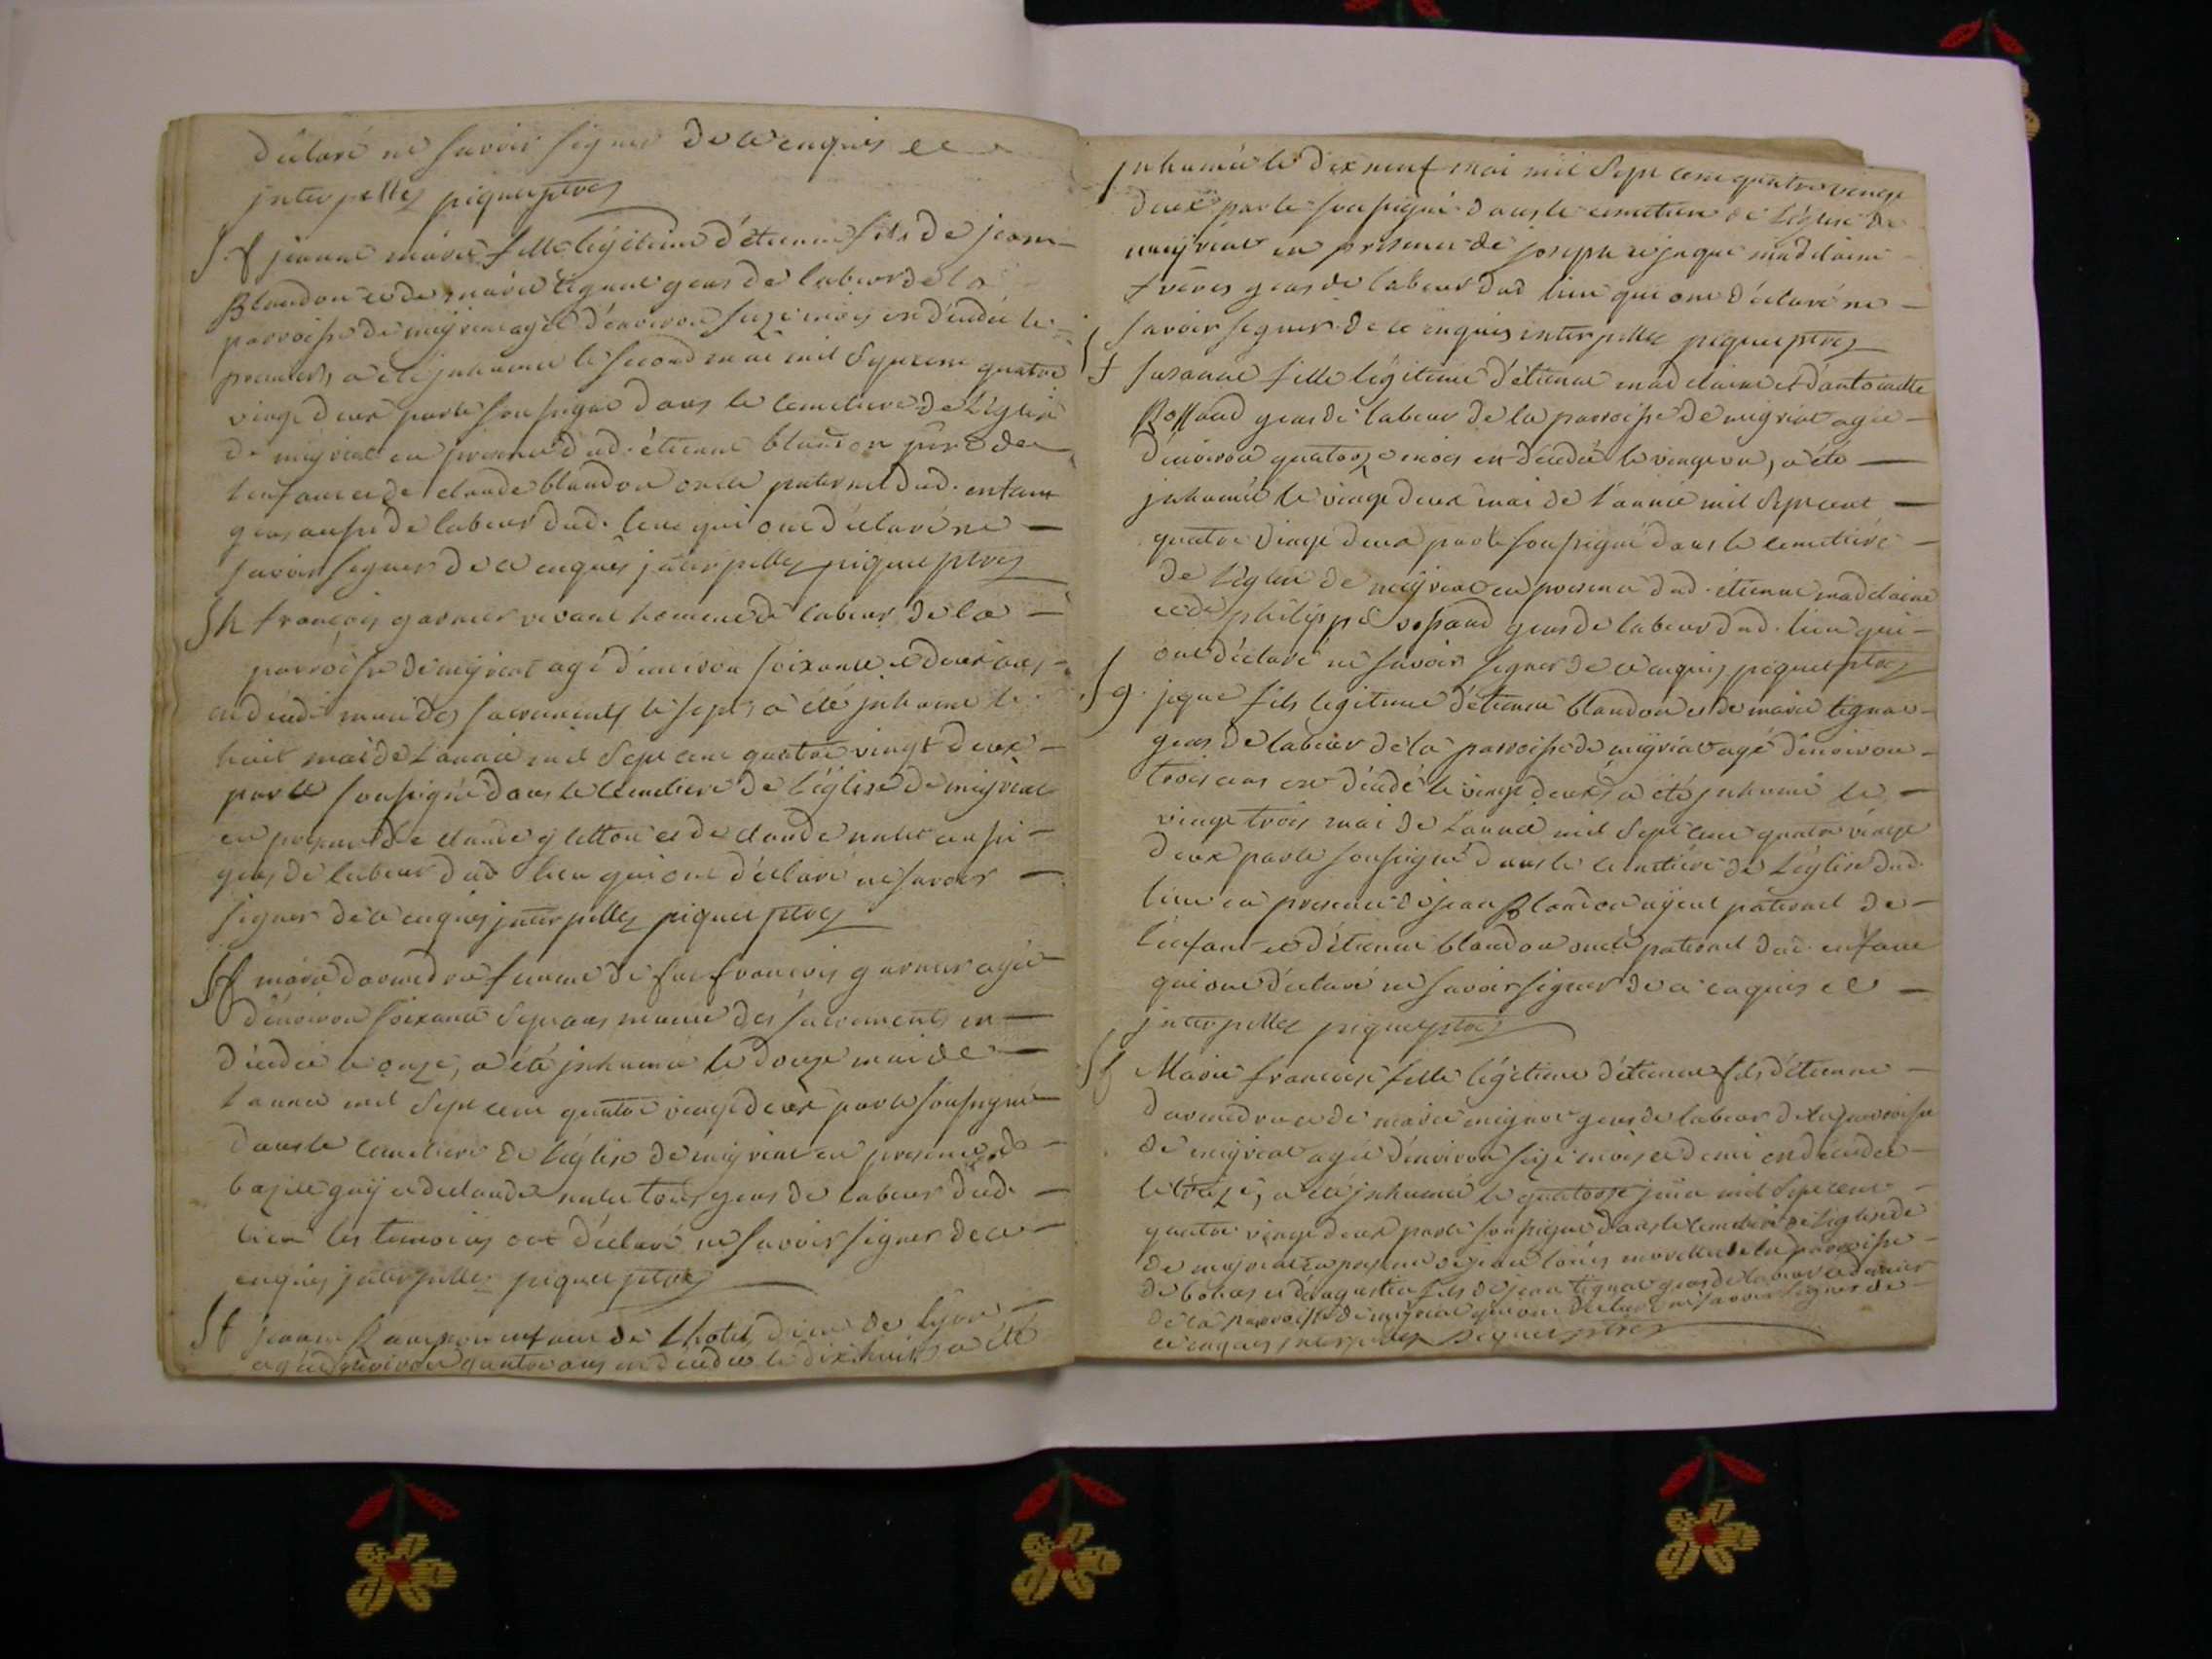 déclaré ne savoir signer de ce enquis et
interpellés piquet ptre
S. f jeanne marie fille légitime d'étienne fils de jean
Blandon et de marie tignat gens de labeur de la
parroisse de meyriat agée d'environ seize mois en décédée le
premier, a été inhumée le second mai mil sept cent quatre
vingt deux par le soussigné dans le cemetiere de l'église
de meyriat en presence dud. étienne blandon père de
l'enfant et de claude blandon oncle paternel dud. enfant
gens aussi de labeur dud. lieu qui ont déclaré ne
savoir signer de ce enquis interpellés piquet ptre
Sh françois garnier vivant homme de labeur de la
parroisse de meyriat agé d'environ soixante et deux ans
en décédé muni des sacrements le sept, a été inhumé le
huit mai de l'année mil sept cent quatre vingt deux
par le soussigné dans le cemetiere de l'église de meyriat
en presence de claude gilleton et de claude nulet aussi
gens de labeur dud lieu qui ont déclaré ne savoir
signer de ce enquis interpellés piquet ptre
Sf marie darmedru femme de feu françois garnier agée
d'environ soixante sept ans munie des sacrements en
décédée le onze, a été inhumée le douze mai de
l'année mil sept cent quatre vingt deux par le soussigné
dans le cemetiere de l'église de meyriat en presence de
bazile guy et de claude nulet tous gens de labeur dud.
lieu les temoins ont déclaré ne savoir signer de ce
enquis interpellés piquet ptre
Sf jeanne enfant de l'hotel dieu de lyon
agée d'environ quatre ans en décédée le dix huit, a été
inhumée le dix neuf mai mil sept cent quatre vingt
deux par le soussigné dans le cemetiere de l'église de
meyriat en presence de joseph et jaque maddelaine
frères gens de labeur dud lieu qui ont déclaré ne
savoir signer de ce enquis interpellés piquet ptre
Sf susanne fille légitime d'étienne maddelaine et d'antoinette
Rossand gens de labeur de la parroisse de meyriat agée
d'environ quatorze mois en décédée le vingt un, a été
inhumée le vingt deux mai de l'année mil sept cent
quatre vingt deux par le soussigné dans le cemetiere
de l'église de meyriat en presence dud. étienne maddelaine
et de philippe rossand gens de labeur dud. lieu qui
ont déclaré ne savoir signer de ce enquis piquet ptre
Sg. jaque fils legitime d'étienne blandon et de marie tignat
gens de labeur de la parroisse de meyriat agé d'environ
trois ans en décédé le vingt deux, a été inhumé le
vingt trois mai de l'année mil sept cent quatre vingt
deux par le soussigné dans le cemetiere de l'église dud.
lieu en presence de jean Blandon ayeul paternel de
l'enfant et d'étienne blandon oncle paternel dud. enfant
qui ont déclaré ne savoir signer de ce enquis et
interpellés piquet ptre
Sf Marie françoise fille légitime d'étienne fils d'étienne
darmedru et de marie mignot gens de labeur de la parroisse
de meyriat agée d'environ seize mois et demi en décédée
le treize, a été inhumée le quatorze juin mil sept cent
quatre vingt deux par le soussigné dans le cemetiere de l'église de
de meyriat en presence de jean louis morellet de la parroisse
de bohas et d'augustin fils de jean tignat gens de labeur et dernier
de la parroisse de meyriat qui ont déclaré ne savoir signer de
ce enquis interpellés piquet ptre